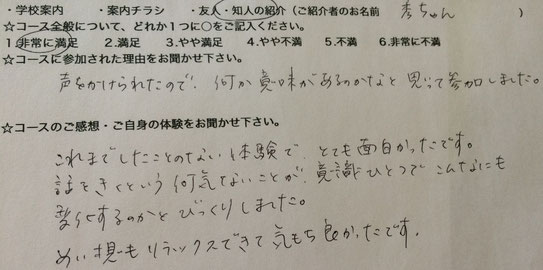 ・学校案内　・案内チラシ　・友人・知人の紹介（ご紹介者のお名前　秀ちゃん　）
☆コース全般について、どれか１つに○をご記入ください。
１.非常に満足　２.満足　３.やや満足　４.やや不満　５.不満　６.非常に不満
☆コースに参加された理由をお聞かせ下さい。
声をかけられたので！何か意味があるのかなと思って参加しました。
☆コースのご感想・ご自身の体験をお聞かせ下さい。
これまでしたことのない体験で、とても面白かったです。
話をきくという何気ないことが、意識ひとつでこんなにも
変化するのかとびっくりしました。
めい想もリラックスできて気もち良かったです。